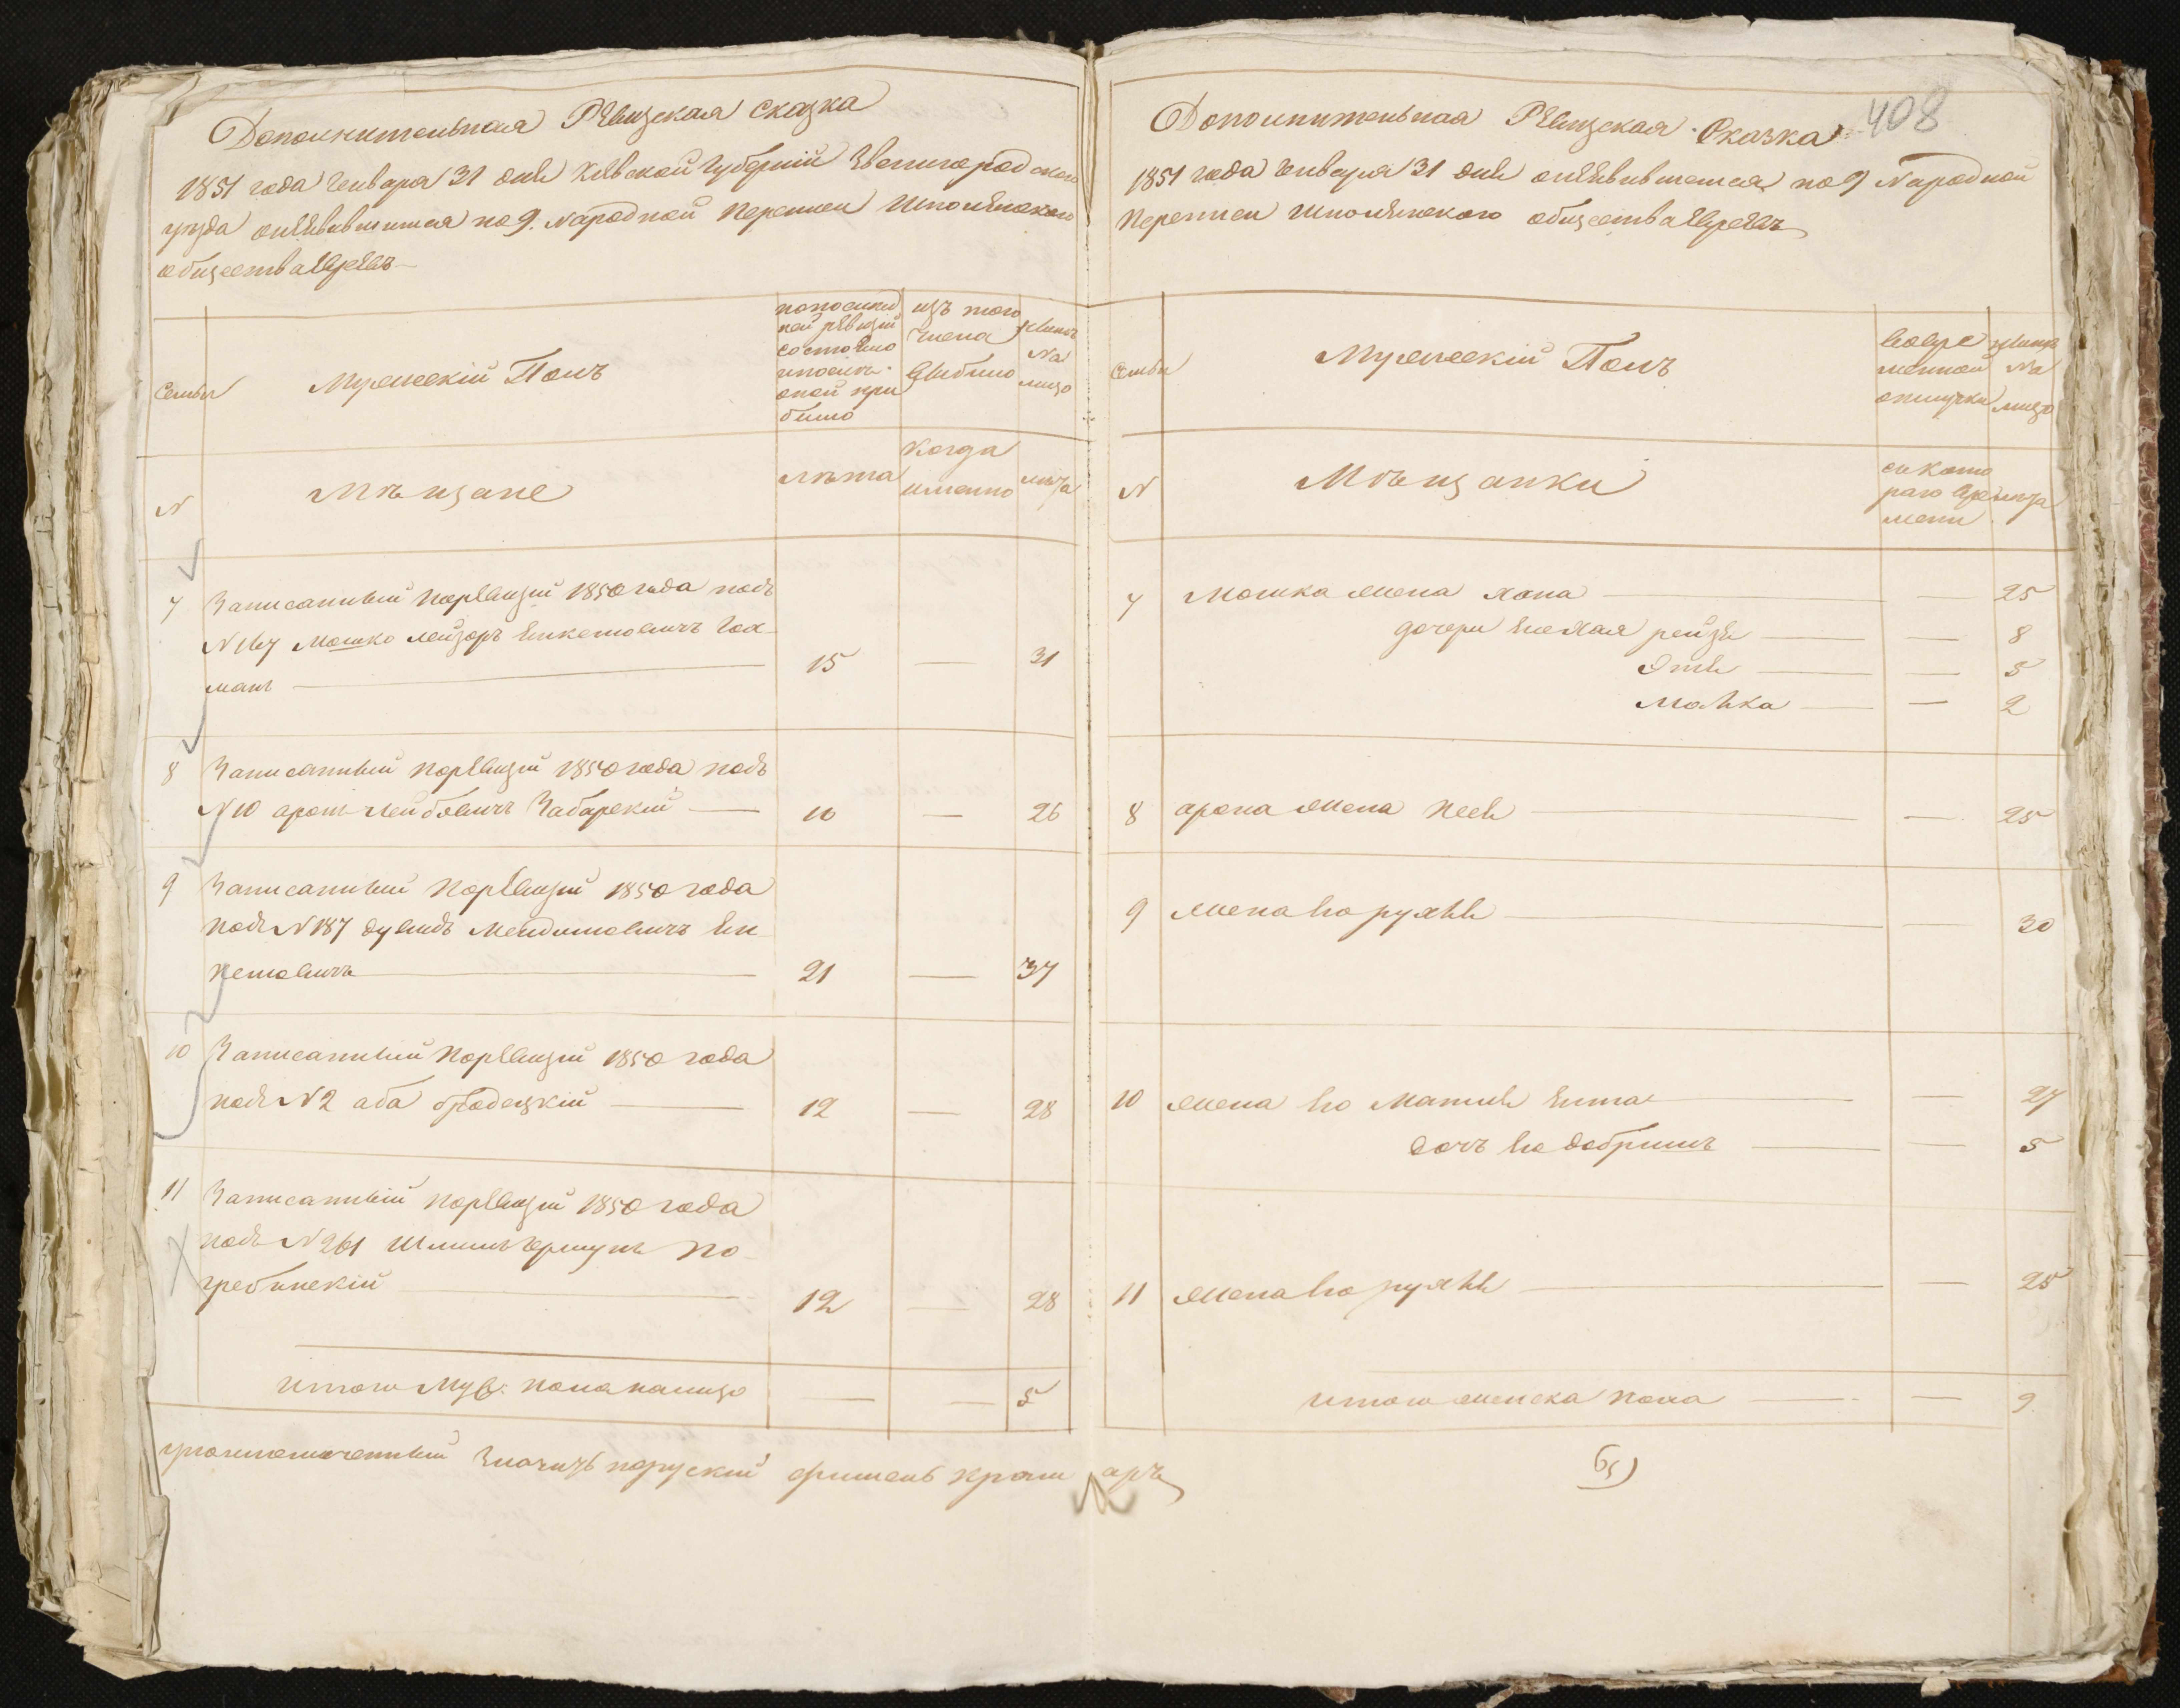 Дополнительная Ревизская Сказка
1851 года Генваря 31 дня Киевской Губернiи Звенигородского
уезда оиявившимся по 9. Народной Переписи Шполянского
общества Евреевъ
Семьи
Мужескiй Полъ
по послед
ней ревизiи
состояло
и после
оной при
было
изъ того
числа
выбыло
Ныне
на
лицо
N
Мѣщане
лѣта
Когда
именно
лѣта
7
Записанный По ревизiи 1850 года подъ
N 167 Мошко Лейзоръ Гох
манъ
15
—
31
8
Записанный По ревизiи 1850 года подъ
N 10 аронъ Лейбовичъ Забарскiй
10
—
26
9
Записанный По ревизiи 1850 года
Подъ N 187 дувидъ Менделевичъ
21
—
37
10
Записанный По ревизiи 1850 года
подъ N 2 аба бродецкiй
12
—
28
11
Записанный По ревизiи 1850 года
подъ N 261 По
гребинскiй
12
—
28
итого Муж. пола налицо
—
—
5
408
Дополнительная Ревизская Сказка
1851 года Генваря 31 дня по 9 Народной
Переписи Шполянского общества Евреевъ
Семьи
Мужескiй Полъ
во вре
менной
отлучке
ныне
на
лицо
N
Мѣщанки
с которо
раго вре
мени
лѣта
7
Мошка жена Хана
—
25
дочери рейзя
—
8
Этя
—
5
Малка
—
2
8
арона жена Песя
—
25
9
жена его рухля
—
30
10
жена его Ента
—
27
дочь его добришъ
—
5
11
жена его рухля
—
25
итого женска пола
—
9